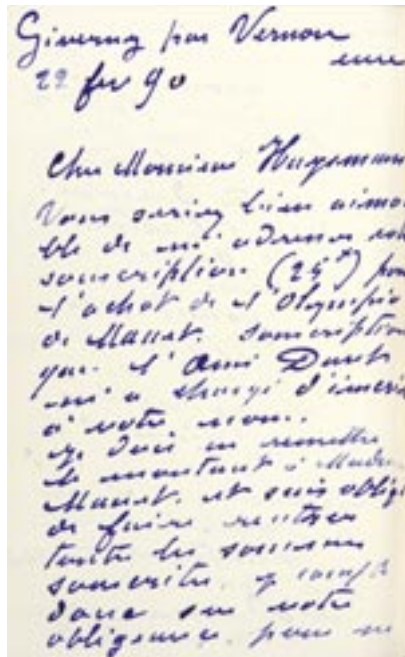 Giverny par Vernon
eure
22 fev 90
Cher Monsieur Huysmans
Vous seriez bien aima-
ble de m'adresser votre
souscription (25f) pour
l'achat de l'Olympia
de Manet. souscription
que l'ami
m'a chargé d'inscrire
à votre nom.
Je dois en remettre
le montant à Madame
Manet. et suis obligé
de faire rentrer
toutes les sommes
souscrites. je compte
donc sur votre
obligeance pour me